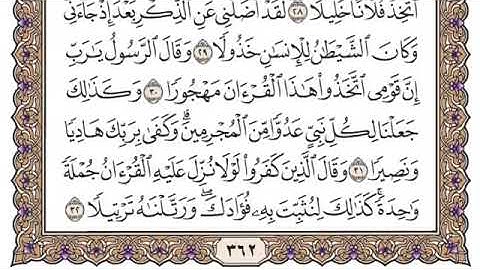 أَتَّخِذْ فُلَانًا خَلِيلًا ٢٨ لَّقَدْ أَضَلَّنِي عَنِ ٱلذِّكْرِ بَعْدَ إِذْ جَآءَنِي
وَكَانَ ٱلشَّيْطَٰنُ لِلْإِنسَٰنِ خَذُولًا ٢٩ وَقَالَ ٱلرَّسُولُ يَٰرَبِّ
إِنَّ قَوْمِي ٱتَّخَذُوا۟ هَٰذَا ٱلْقُرْءَانَ مَهْجُورًا ٣٠ وَكَذَٰلِكَ
جَعَلْنَا لِكُلِّ نَبِيٍّ عَدُوًّا مِّنَ ٱلْمُجْرِمِينَ ۗ وَكَفَىٰ بِرَبِّكَ هَادِيًا
وَنَصِيرًا ٣١ وَقَالَ ٱلَّذِينَ كَفَرُوا۟ لَوْلَا نُزِّلَ عَلَيْهِ ٱلْقُرْءَانُ جُمْلَةً
وَٰحِدَةً ۚ كَذَٰلِكَ لِنُثَبِّتَ بِهِۦ فُؤَادَكَ ۖ وَرَتَّلْنَٰهُ تَرْتِيلًا ٣٢
٣٦٢